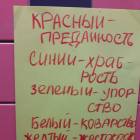 КРАСНЫЙ-
ПРЕДАННОСТЬ
СИНИЙ-ХРАБ
РОСТЬ
ЗЕЛЕНЫЙ-УПОР
СТВО
БЕЛЫЙ-КОВАРСТВО
ЖЕЛТЫЙ-ЖЕСТОКОСТ